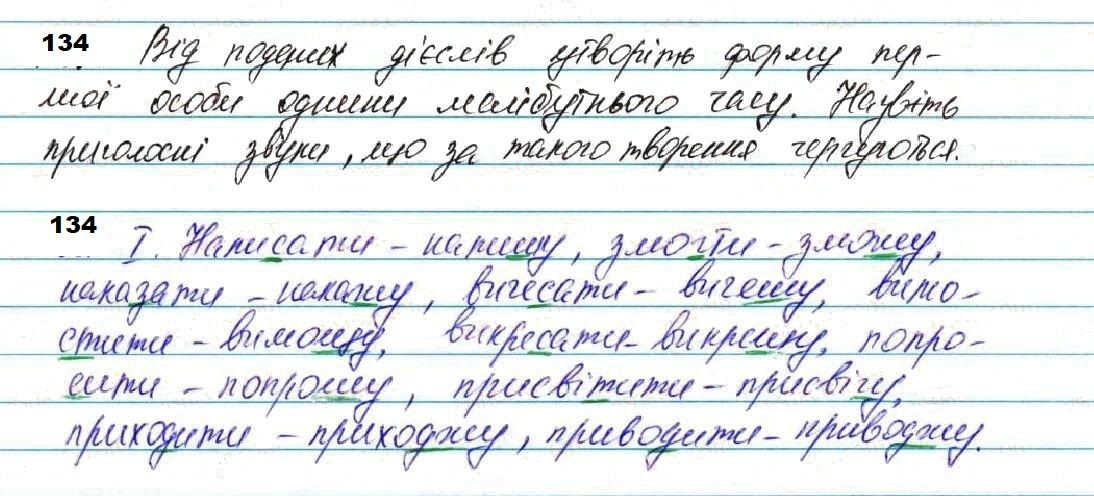 134 Від поданих дієслів утворіть форму пер-
шої особи однини майбутнього часу. Назвіть
приголосні звуки, що за такого творення чергуються.
134 І. Написати – напишу, змогти – зможу,
показати – покажу, вичесати – вичешу, вимо-
стити – вимощу, викресати – викрешу, попро-
сити – попрошу, присвітити – присвічу,
приходити – приходжу, приводити – приводжу.